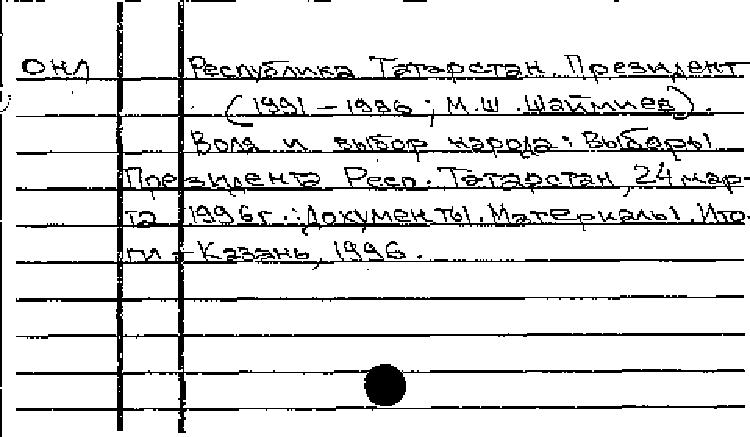 ОНЛ Республика Татарстан. Президент
(1991 – 1996; М.Ш. Шаймиев).
Воля и выбор народа: Выборы
Президента Респ. Татарстан, 24 мар-
та 1996 г.: Документы. Материалы. Ито-
ги – Казань, 1996.